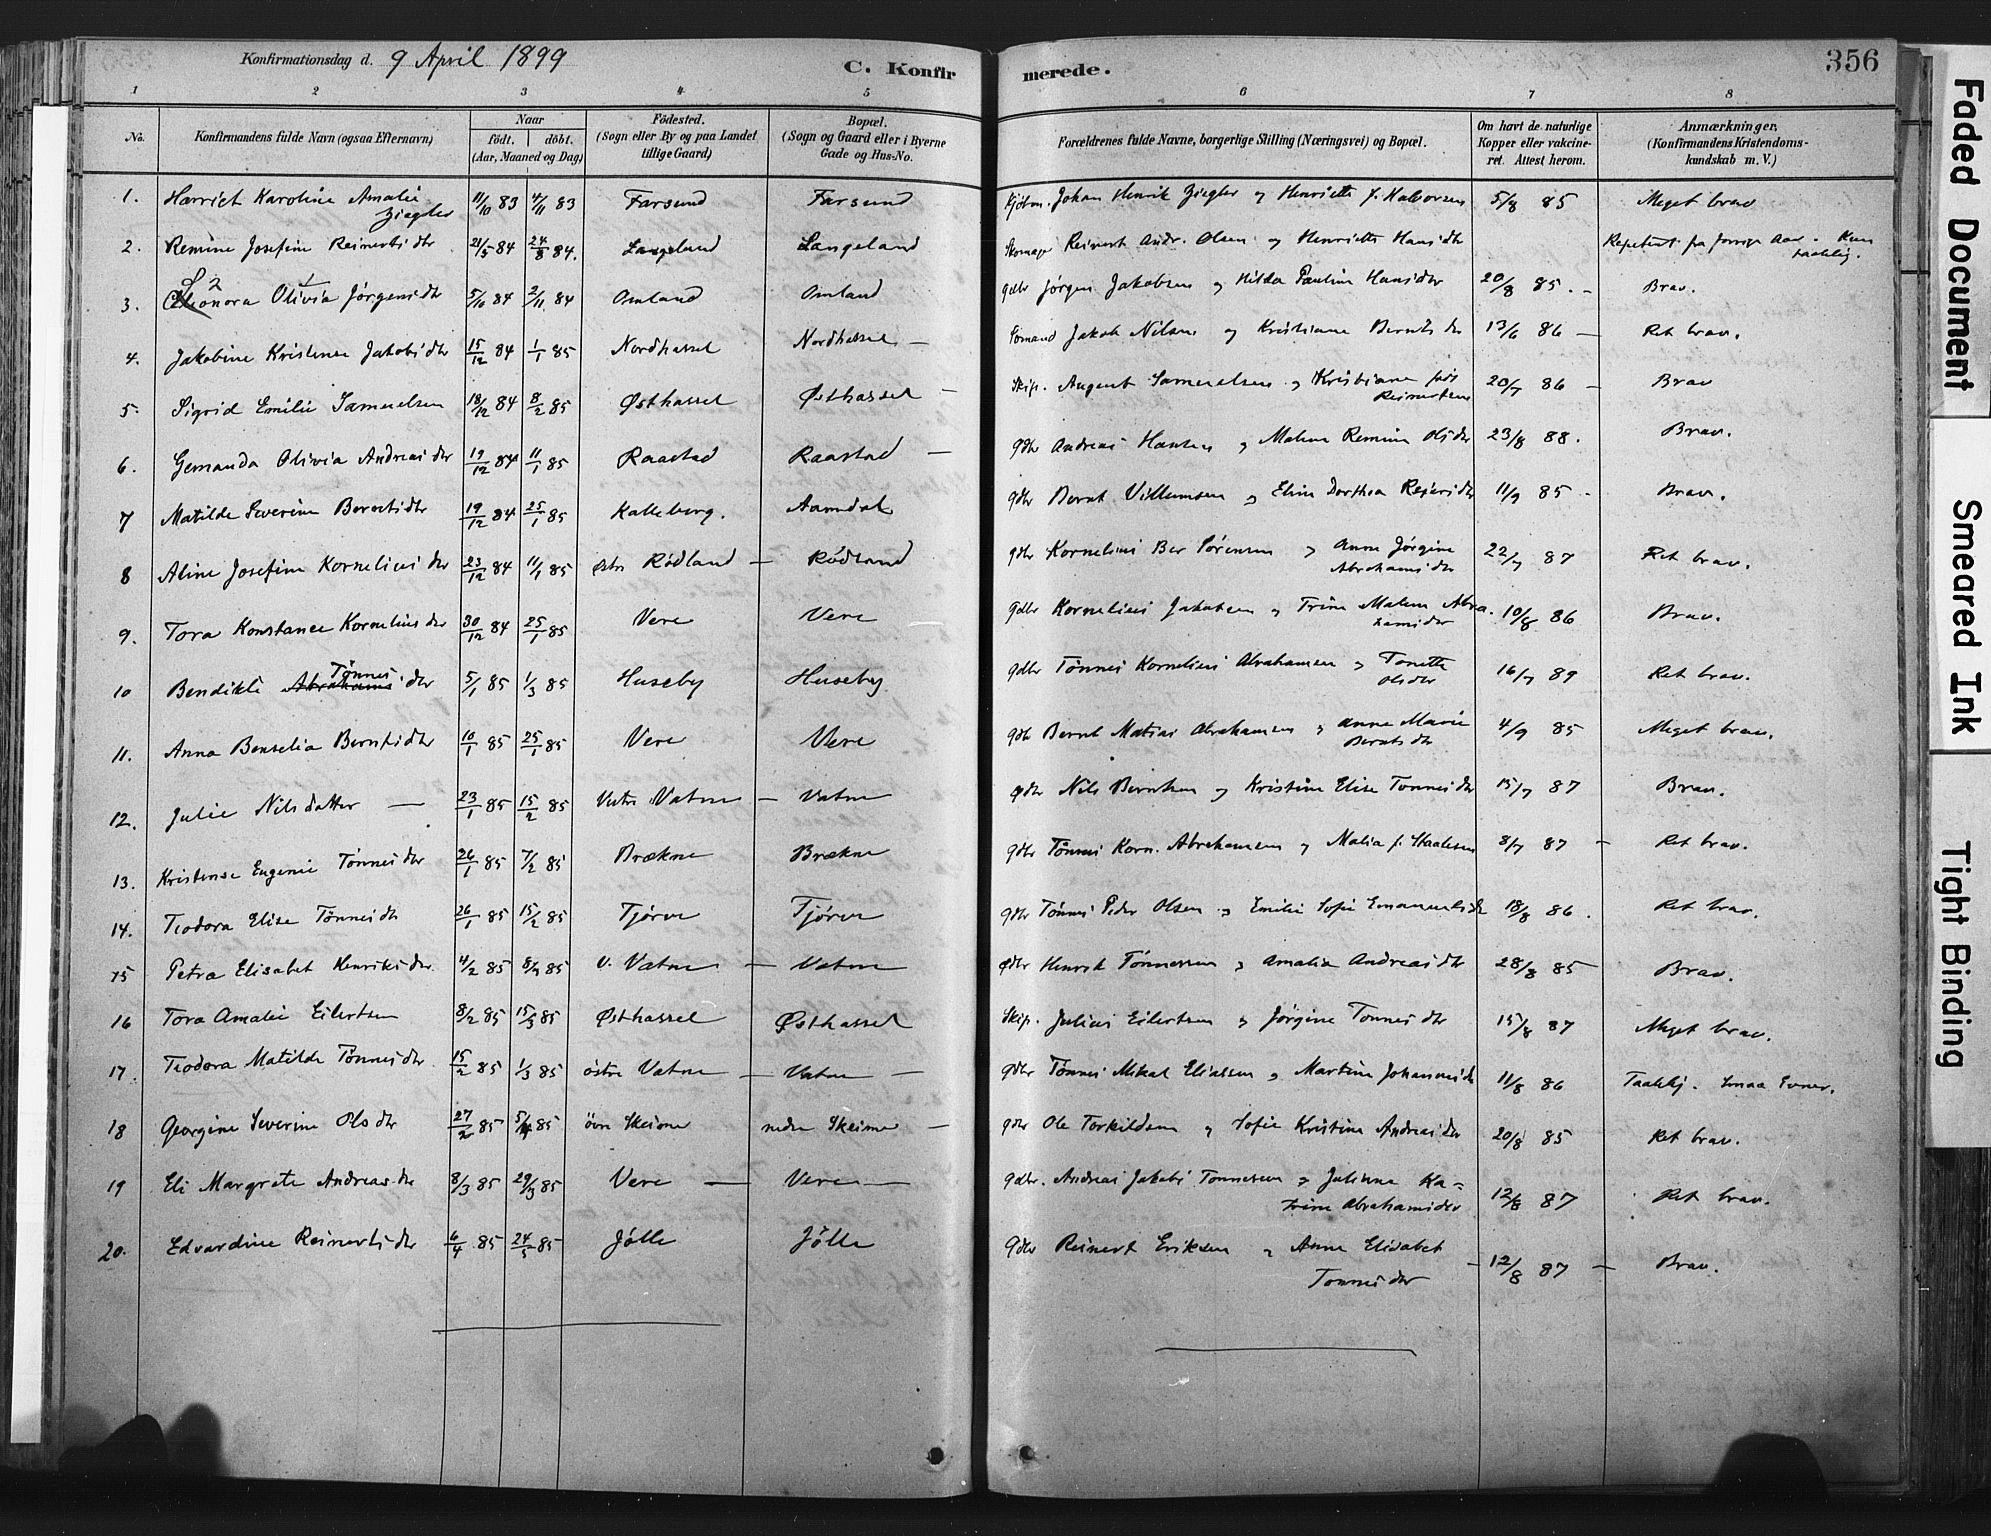 Konfirmationsdag d. 9 April 1899
C. Konfirmerede.
356
1 2 3 4 5 6 7 8
No.
Konfirmandens fulde Navn (ogsaa Efternavn)
Naar
födt. | döbt.
(Aar, Maaned og Dag)
Födested.
(Sogn eller By og paa Landet
tillige Gaard)
Bopæl.
(Sogn og Gaard eller i Byerne
Gade og Hus-No.
Forældrenes fulde Navne, borgerlige Stilling (Næringsvei) og Bopæl.
Om havt de naturlige
Kopper eller vakcine-
ret. Attest herom.
Anmærkninger.
(Konfirmandens Kristendoms-
kundskab m. V.)
1. Harriet Karoline Amalie Ziegler 11/10 83 4/11 83 Farsund Farsund Kjöbm. Johan Henrik Ziegler og Henriette f. Halvorsen 5/8 85 Meget brav
2. Remine Josefine Reinertsdtr 21/5 84 24/8 84. Langeland Langeland Skomager Reinert Andr. Olsen og Henriette Hansdtr Repetent fra forrige Aar. Kun taalelig.
3. Leonora Olivia Jørgensdtr 5/10 84 2/11 84 Omland Omland gdbr Jørgen Jakobsen og Hilda Pauline Hansdtr 20/8 85. - Brav.
4. Jakobine Kristense Jakobsdtr 15/12 84 1/1 85 Nordhassel Nordhassel - Sømand Jakob Nilsen og Kristiane Berntsdtr 13/6 86 - Ret brav.
5. Sigrid Emilie Samuelsen 18/12 84 8/2 85 Østhassel Østhassel - Skip. August Samuelsen og Kristiane født Reinertsen 20/7 86 - Brav
6. Gemanda Olivia Andreasdtr 19/12 84 11/1 85 Raastad Raastad - gdbr Andreas Hansen og Malene Remine Olsdtr 23/8 88. Brav.
7 Matilde Severine Berntsdtr 19/12 84 25/1 85 Kalleberg. Aamdal gdbr Bernt Villumsen og Eline Dorthea Reiersdtr 11/9 85 - Brav.
8 Aline Josefine Korneliusdtr 23/12 84 11/1 85 Østre Rødland - Rødland gdbr Kornelius Ber Sørensen og Anne Jørgine Abrahamsdtr 22/7 87 Ret brav.
9. Tora Konstance Korneliusdtr 30/12 84 25/1 85 Vere Vere gdbr Kornelius Jakobsen og Trine Malene Abrahamsdtr 10/8 86 Brav.
10 Bendikte Abrahams Tønnesdtr 5/1 85 1/3 85 Huseby Huseby gdbr Tønnes Kornelius Abrahamsen og Tonette Olsdtr 16/7 89 Ret brav.
11. Anna Benselia Berntsdtr 10/1 85 25/1 85 Vere Vere gdbr Bernt Matias Abrahamsen og Anne Marie Berntsdtr 4/9 85 Meget brav.
12. Julie Nilsdatter - 23/1 85 15/2 85 Vestre Vatne - Vatne gdbr Nils Berntsen og Kristine Elise Tønnesdtr 15/7 87 Brav.
13. Kristense Eugenie Tønnesdtr 26/1 85 7/2 85 Brækne Brækne gdbr Tønnes Korn. Abrahamsen og Malia f. Staalesen 8/7 87 - Ret brav.
14. Teodora Elise Tønnesdtr 26/1 85 15/2 85 Tjørve Tjørve gdbr Tønnes Peder Olsen og Emilie Sofie Emanuelsdtr 18/8 86. Ret brav.
15 Petra Elisabet Henriksdtr. 4/2 85 85 V. Vatne - Vatne gdbr Henrik Tønnessen og Amalia Andreasdtr 28/8 85 Brav.
16 Tora Amalie Eilertsen 8/2 85 15/3 85 Østhassel Østhassel Skip. Julius Eilertsen og Jørgine Tønnesdtr 15/8 87 Meget brav.
17. Teodora Matilde Tønnesdtr. 15/2 85 1/3 85 østre Vatne - Vatne - gdbr Tønnes Mikal Eliassen og Martine Johannesdtr 11/8 86 Taalelig. Smaa Evner.
18 Georgine Severine Olsdtr 27/2 85 5/4 85 øvre Skeime nedre Skeime - gdbr Ole Torkildsen og Sofie Kristine Andreasdtr 20/8 85 Ret brav.
19 Eli Margrete Andreasdtr 8/3 85 29/3 85 Vere - Vere - gdbr. Andreas Jakobs Tønnessen og Juliane Katrine Abrahamsdtr 12/8 87 Ret brav.
20. Edvardine Reinertsdtr 6/4 85 24/5 85 Jølle Jølle Gdbr Reinert Eriksen og Anne Elisabet Tønnesdtr - 12/8 87 - Brav.
Faded Document
Smeared Ink
Tight Binding